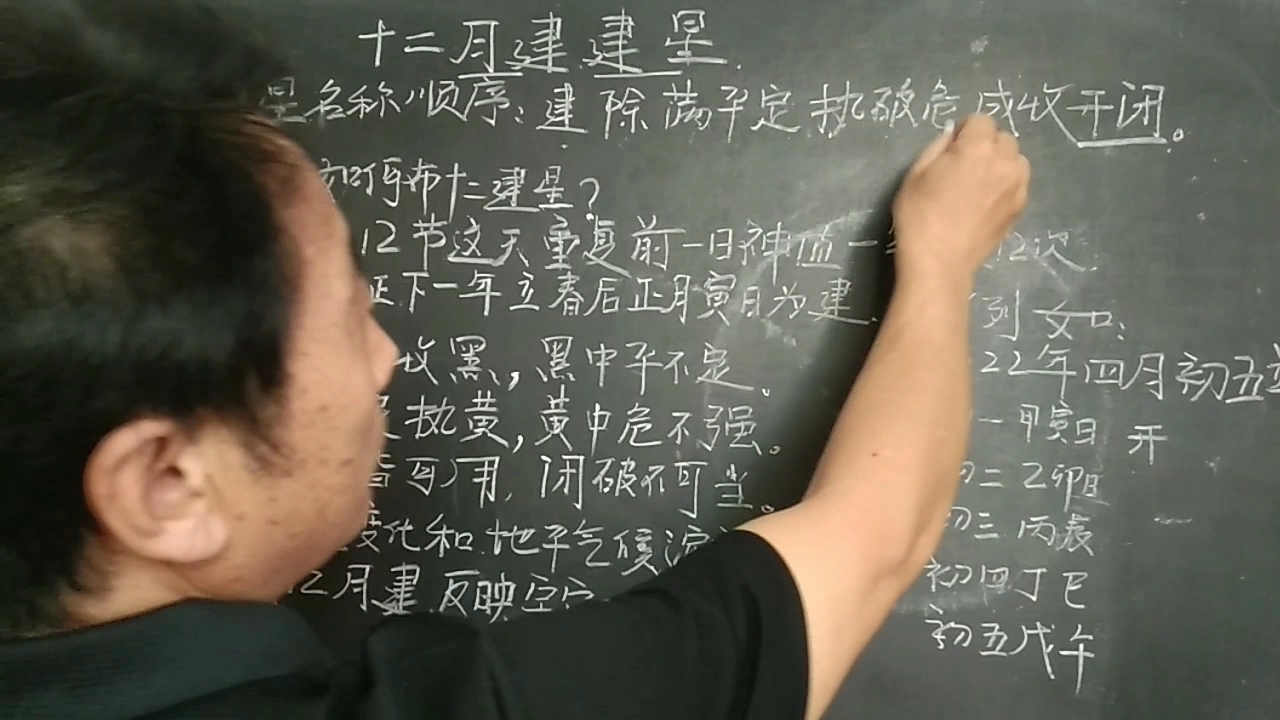 十二月建建星
星名称顺序:建除满平定执破危成收开闭。
如何布十二建星?
12节这天重复前一日神值一 12次
下一年立春后正月寅日为建. 列如:
收黑,黑中平不定。
22年四月初五
执黄,黄中危不强。
一甲寅日 开
皆可用.闭破不可当。
初二乙卯日
变化和地平气候
初三丙辰
12月建反映空
初四丁巳
初五戊午